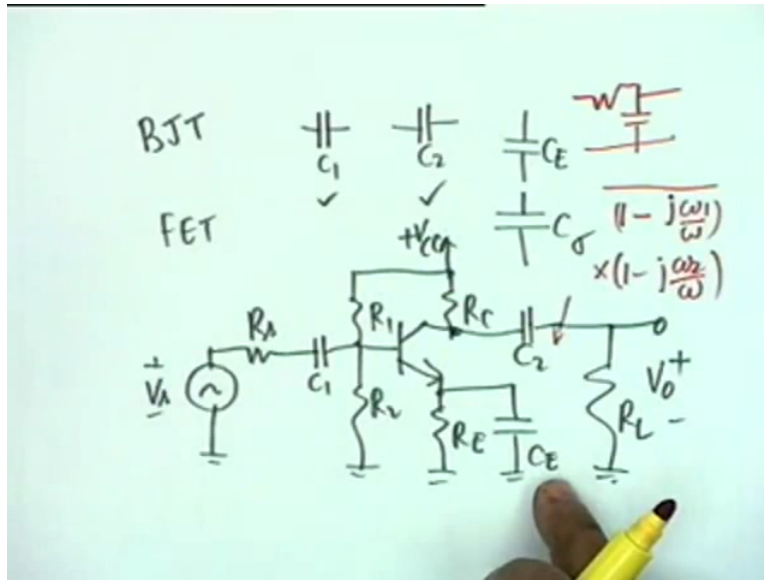 BJT C1 C2 CE
FET Cσ
(1 - jω1/ω)
×(1 - jω2/ω)
+VCC
Rs C1 R1 RC C2
+ Vs -
R2 RE CE RL
+ Vo -